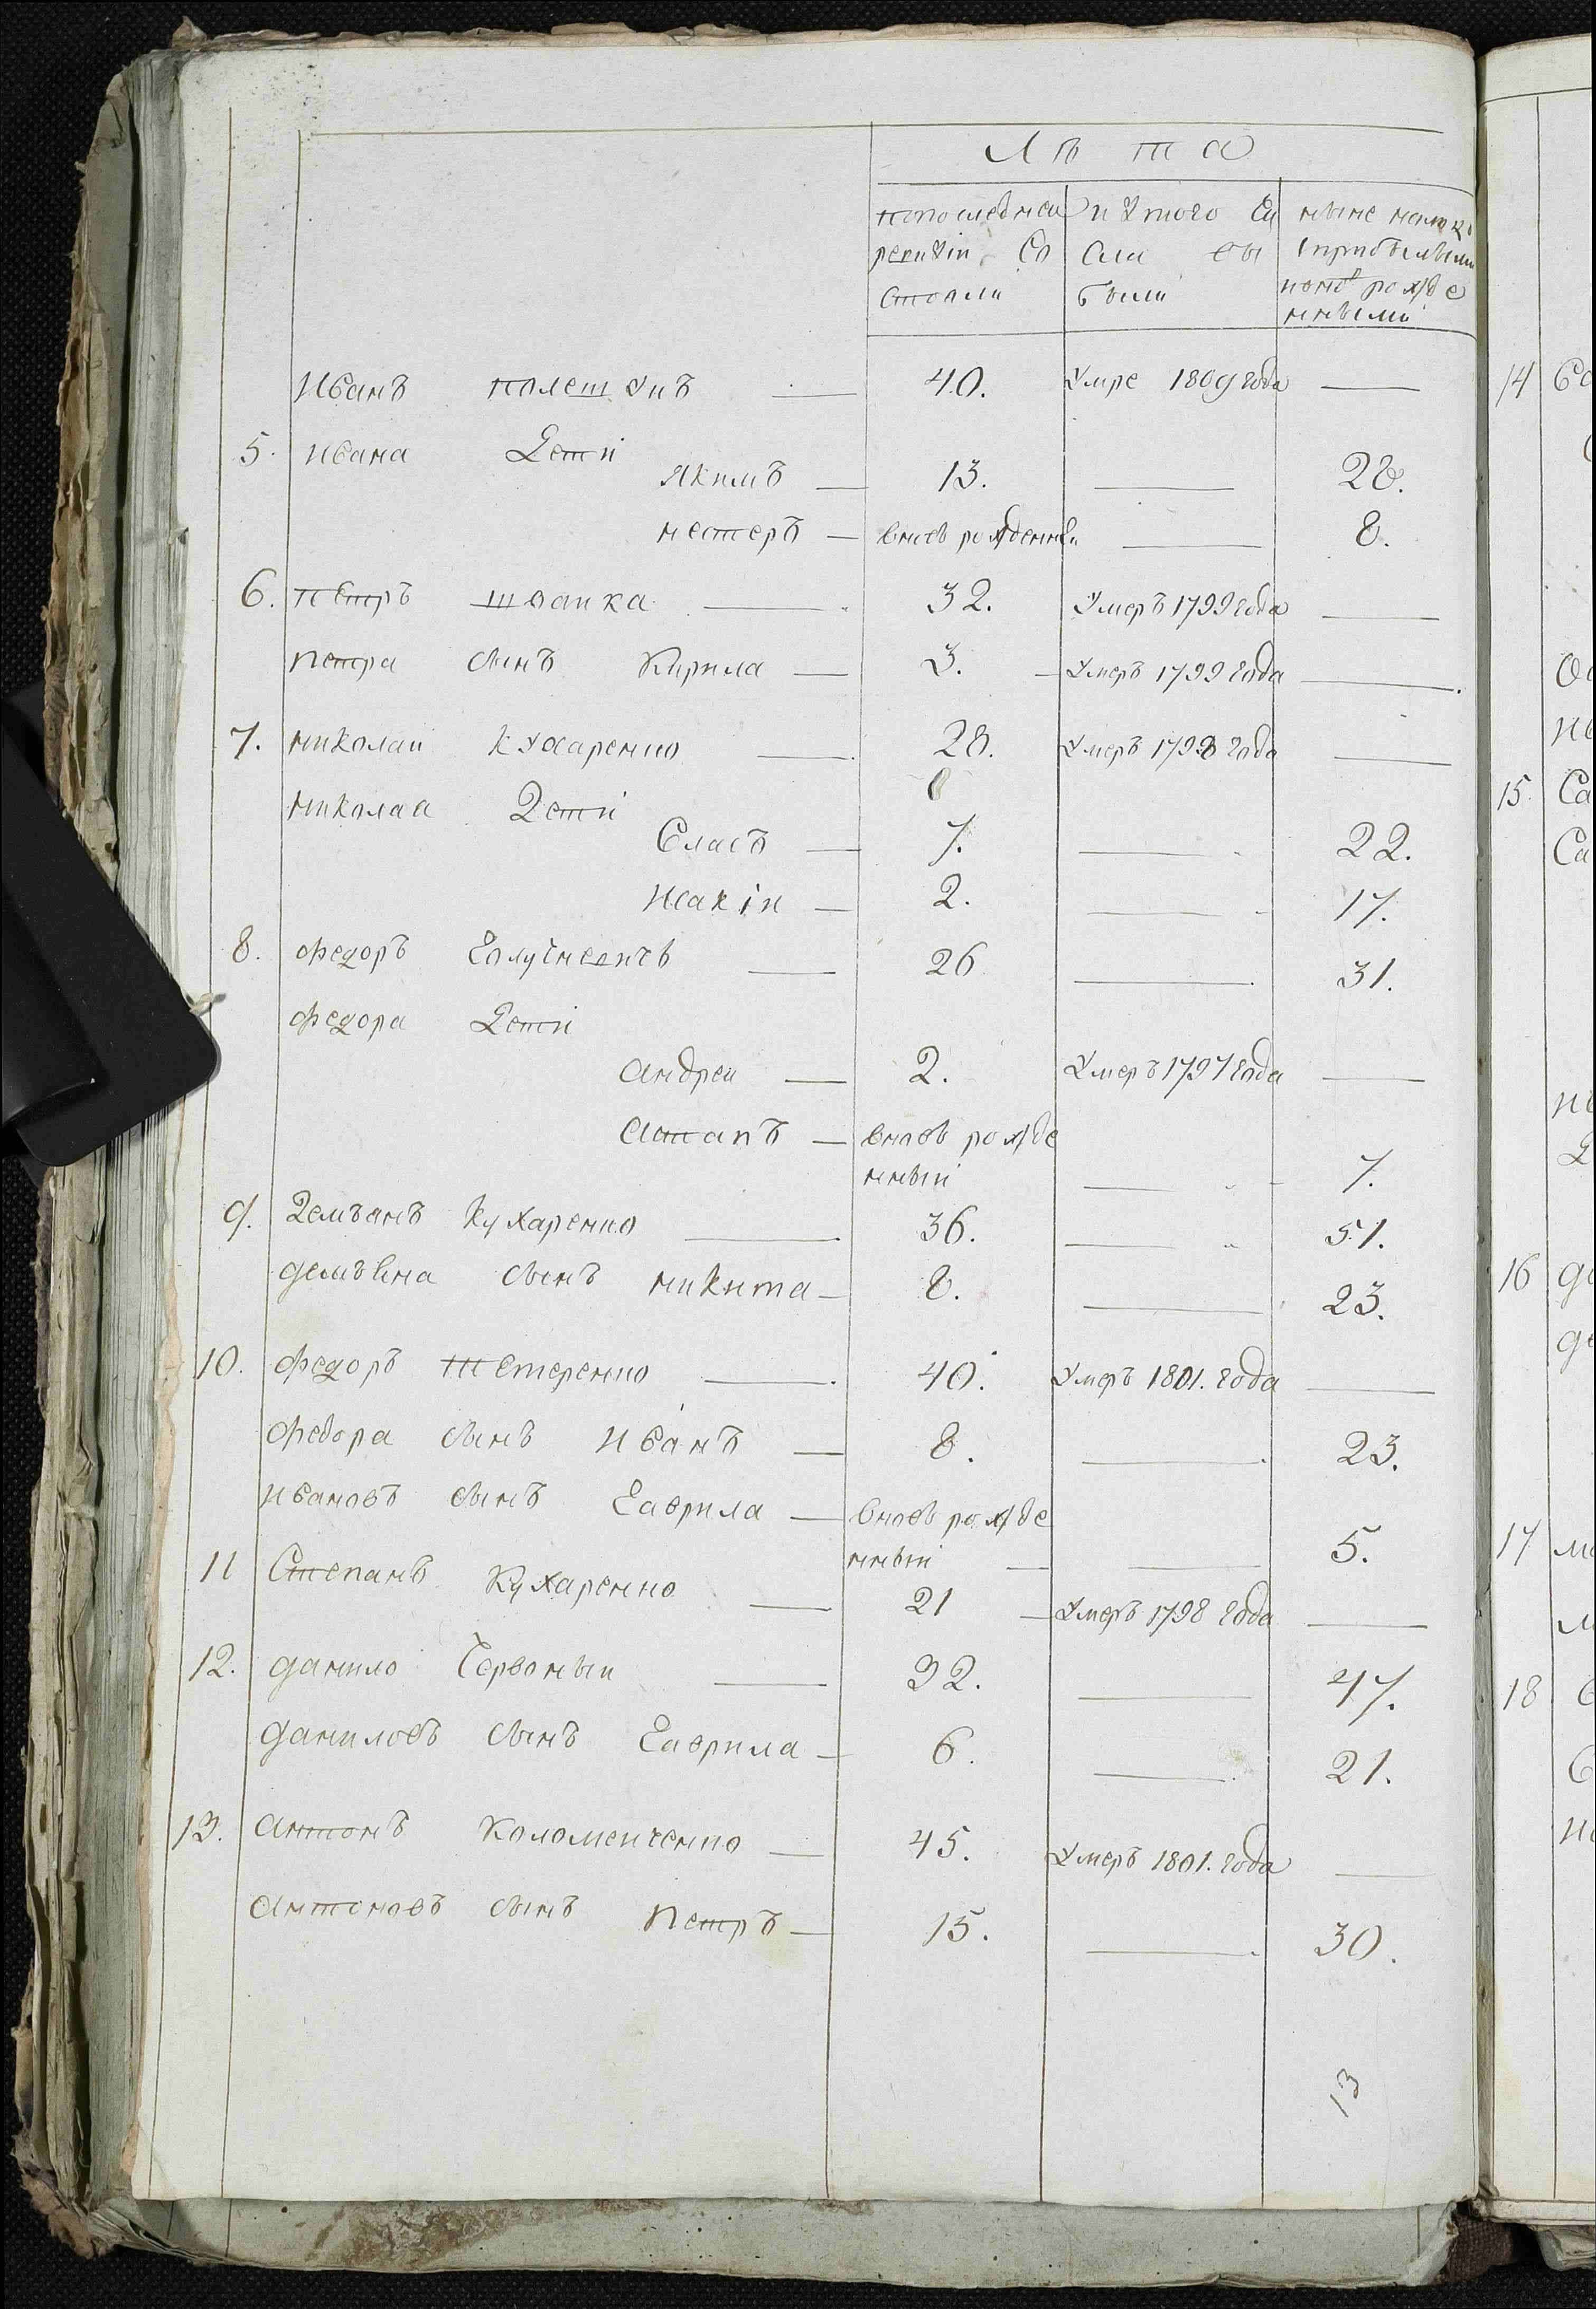 Лѣта
попоследнеи изтого Чи ныне налицо
ревизіи Со сла вы Сприбылыми
стояли были иноворожде
нными
Иванъ Полетукъ — 40. Умре 1809 года —
5. Ивана Дети
Якимъ — 13. — 28.
Нестеръ — вновь рожденны — 8.
6. Петръ — 32. Умеръ 1799 года —
Петра сынъ Кирила — 3. — Умеръ 1799 года —
7. Николаи Кухаренко — 28. Умеръ 1798 года —
Николая Дети
Власъ — 7. — 22.
Исакіи — 2. — 17.
8. Федоръ — 26 — 31.
Федора Дети
Андреи — 2. Умеръ 1797 года —
Астапъ — вновь рожде
нныи — 7.
9. Демъянъ Кухаренко — 36. — 51.
Демъяна сынъ Никита — 8. — 23.
10. Федоръ Тетеренко — 40. Умеръ 1801. года —
Федора сынъ Иванъ — 8. — 23.
Ивановъ сынъ Гаврила — вновь рожде
нныи — — 5.
11 Степанъ Кухаренко — 21 — Умеръ 1798 года —
12. Данило Червоныи — 32. — 47.
Даниловъ сынъ Гаврила — 6. — 21.
13. Антонъ Коломеиченко — 45. Умеръ 1801. года —
Антоновъ сынъ Петръ — 15. — 30.
13
14
15.
Са
Са
16
17
18